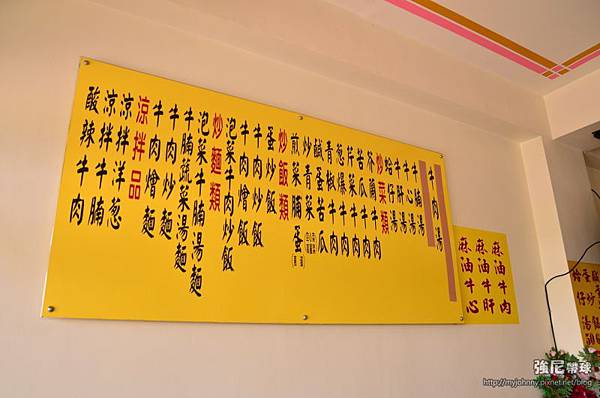 牛肉湯
牛心湯
牛腩湯
牛肝湯
蛤仔湯
炒菜類
芥蘭牛肉
苦瓜牛肉
芹菜牛肉
蔥爆牛肉
青椒牛肉
鹹蛋苦瓜
炒青菜
煎菜脯蛋
炒飯類
蛋炒飯
牛肉炒飯
牛肉燴飯
泡菜牛肉炒飯
炒麵類
泡菜牛腩湯麵
牛腩蔬菜湯麵
牛肉炒麵
牛肉燴麵
涼拌品
涼拌洋蔥
涼拌牛腩
酸辣牛肉
麻油牛肉
麻油牛肝
麻油牛心
強尼帶球
http://myjohnny.pixnet.net/blog